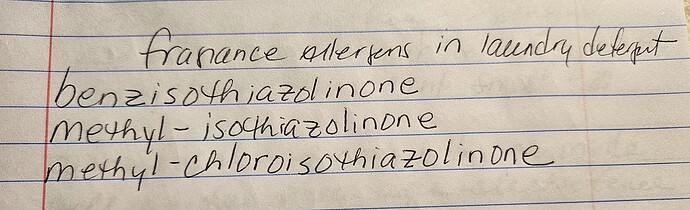 franance allergens in laundry detergent
benzisothiazolinone
methyl-isothiazolinone
methyl-chloroisothiazolinone